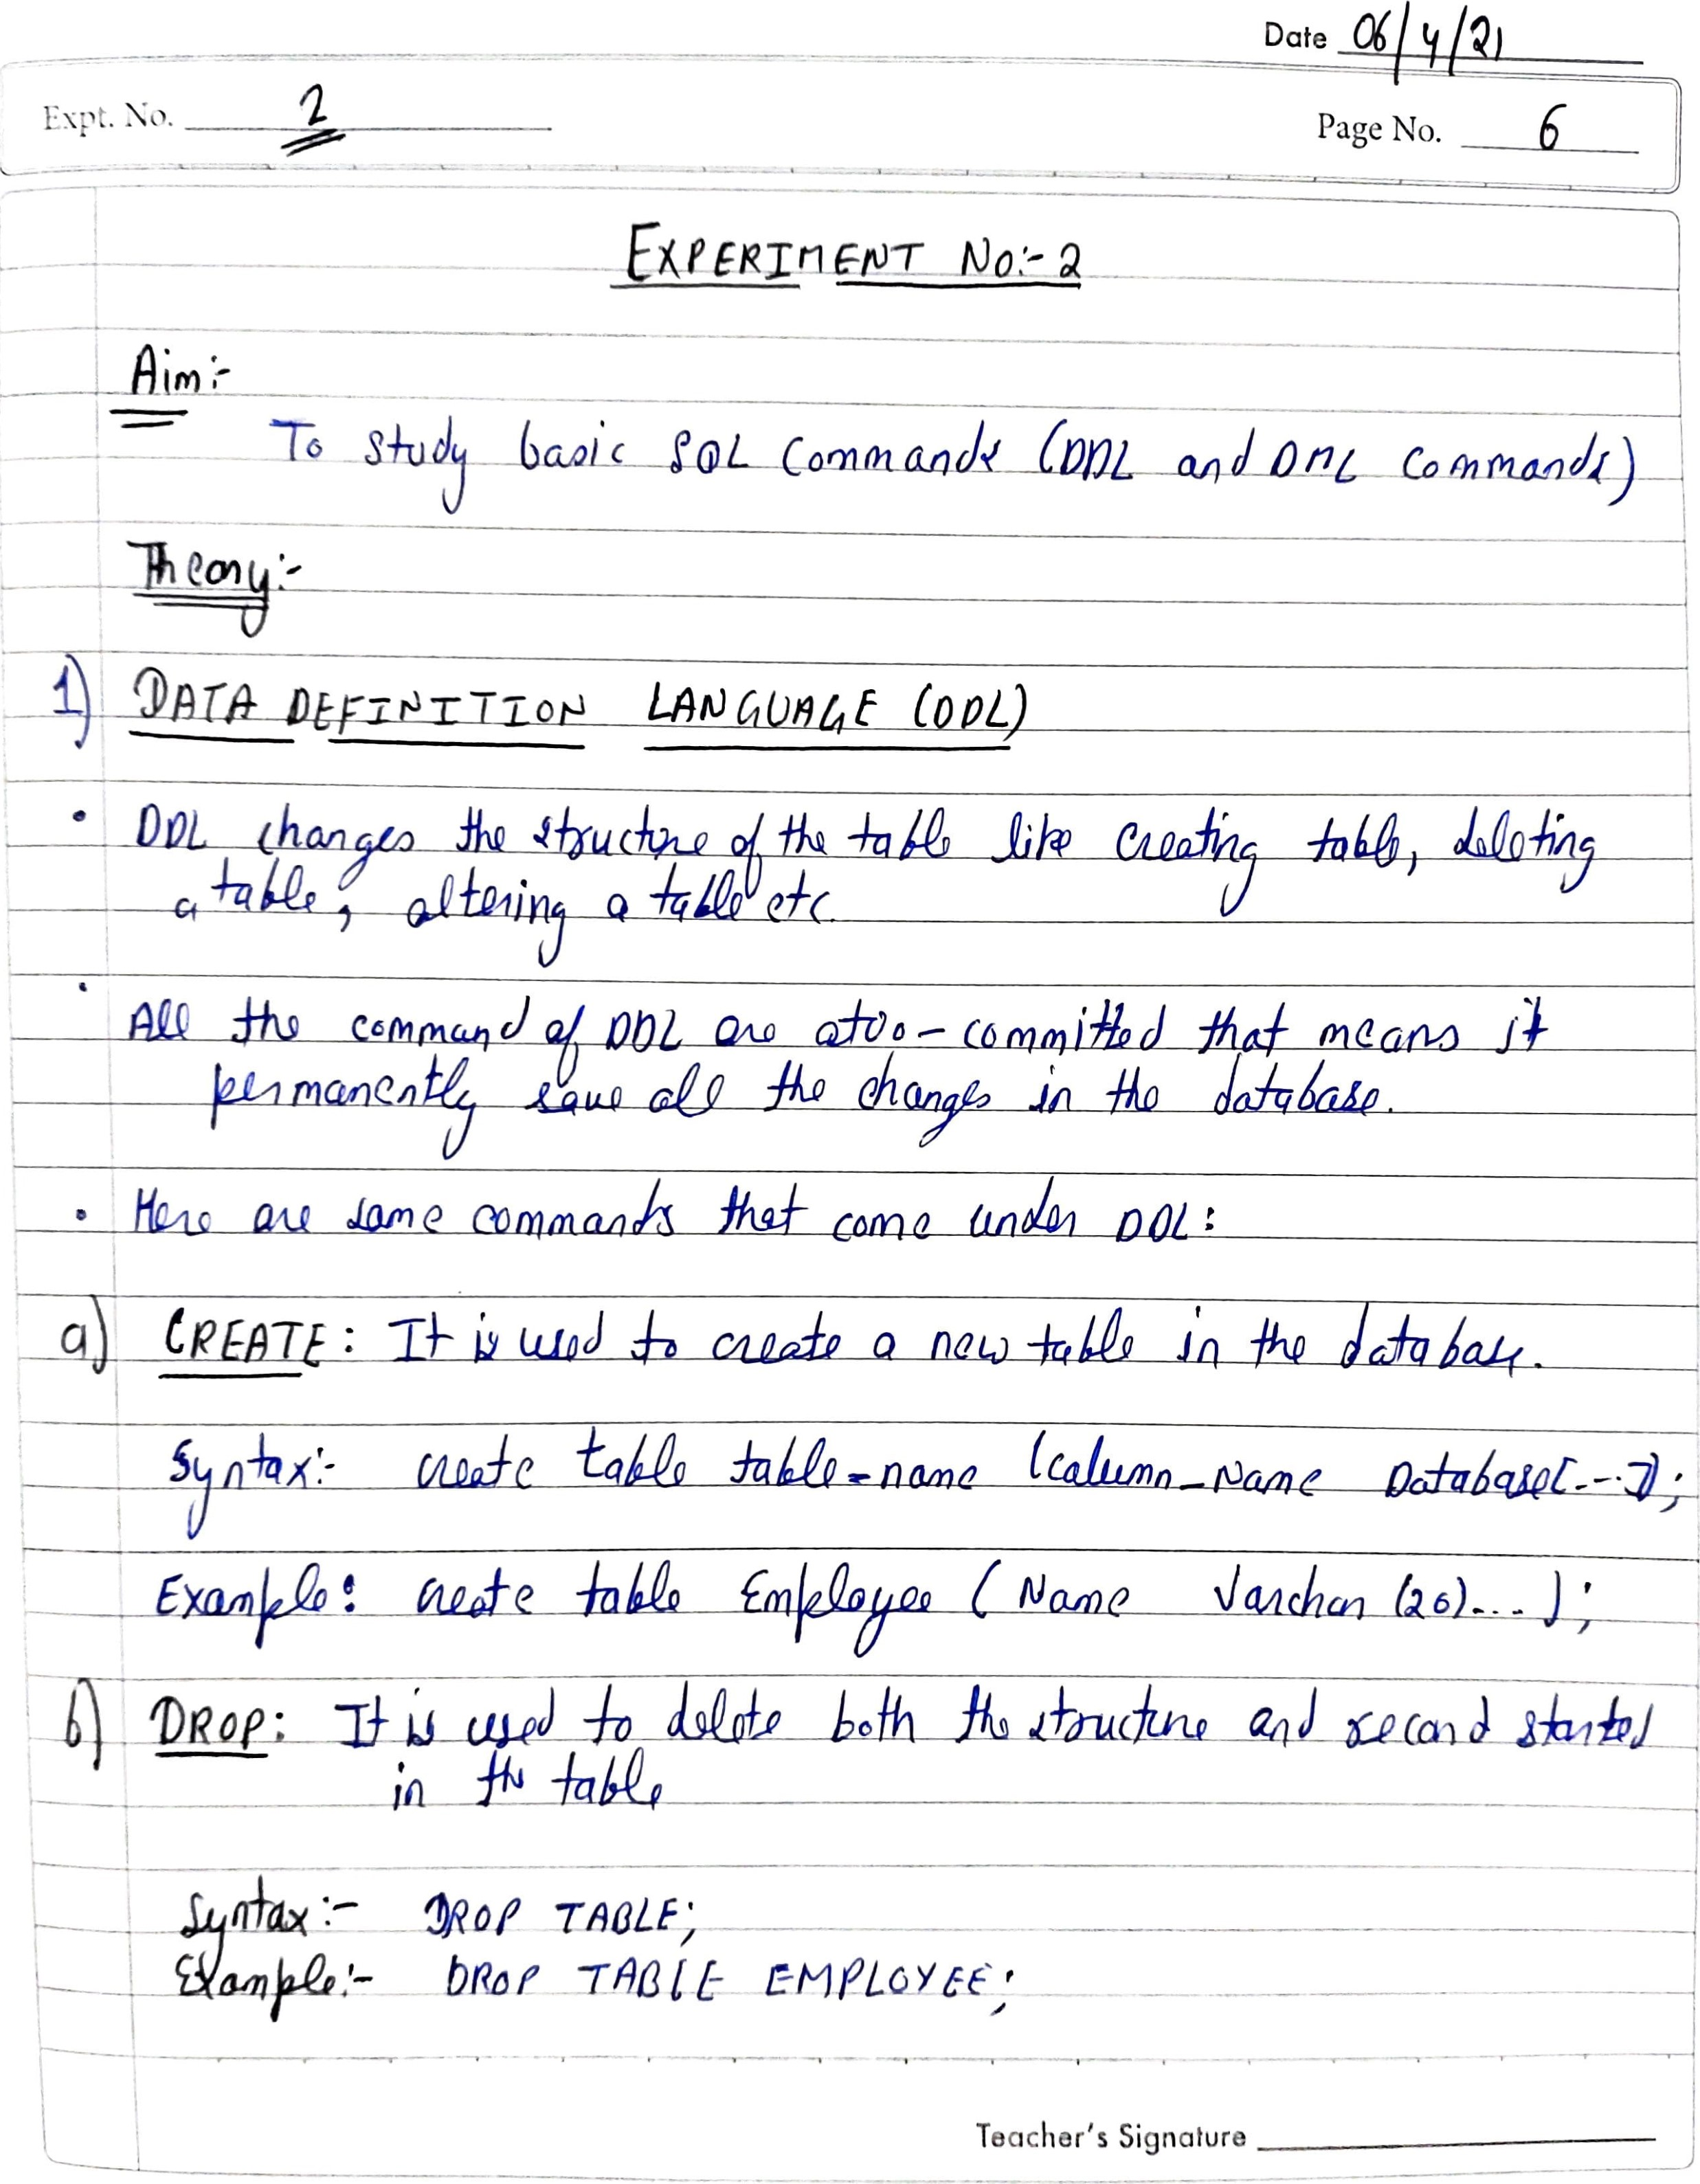 Date 06/4/21
Expt. No. 2
Page No. 6
EXPERIMENT NO:- 2
Aim:-
To study basic SQL Commands (DDL and DML Commands)
Theory:-
1) DATA DEFINITION LANGUAGE (DDL)
• DDL changes the structure of the table like creating table, deleting
a table, altering a table etc.
• All the command of DDL are atoo-committed that means it
permanently save all the changes in the database.
• Here are some commands that come under DDL:
a) CREATE: It is used to create a new table in the database.
Syntax:- create table table-name (column_Name Database[---]);
Example: create table Employee (Name Varchar (20)....);
b) DROP: It is used to delete both the structure and record started
in the table
Syntax:- DROP TABLE;
Example:- DROP TABLE EMPLOYEE;
Teacher's Signature